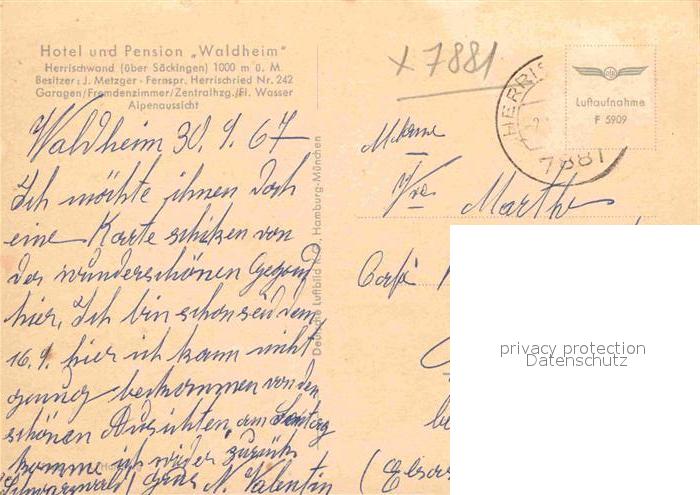 Hotel und Pension „Waldheim"
Herrischwand (über Säckingen) 1000 m ü. M.
Besitzer: J. Metzger - Fernspr. Herrischried Nr. 242
Garagen/Fremdenzimmer/Zentralhzg./Fl. Wasser
Alpenaussicht
Waldheim 30.9.67
Ich möchte ihnen doch
eine Karte schiken von
der wunderschönen Gegend
hier. Ich bin schon seid dem
16.9. hier ich kann nicht
genug bekommen von den
schönen Aussichten, am Sontag
komme ich wieder zurück
Schwarzwald) Gruss N. Valentin
Deutsche Luftbild K.G., Hamburg-München
x 7881
HERRIS
7881
Luftaufnahme
F 5909
Mdame
Vve
Marthe
Café
be
(Elsas
privacy protection
Datenschutz